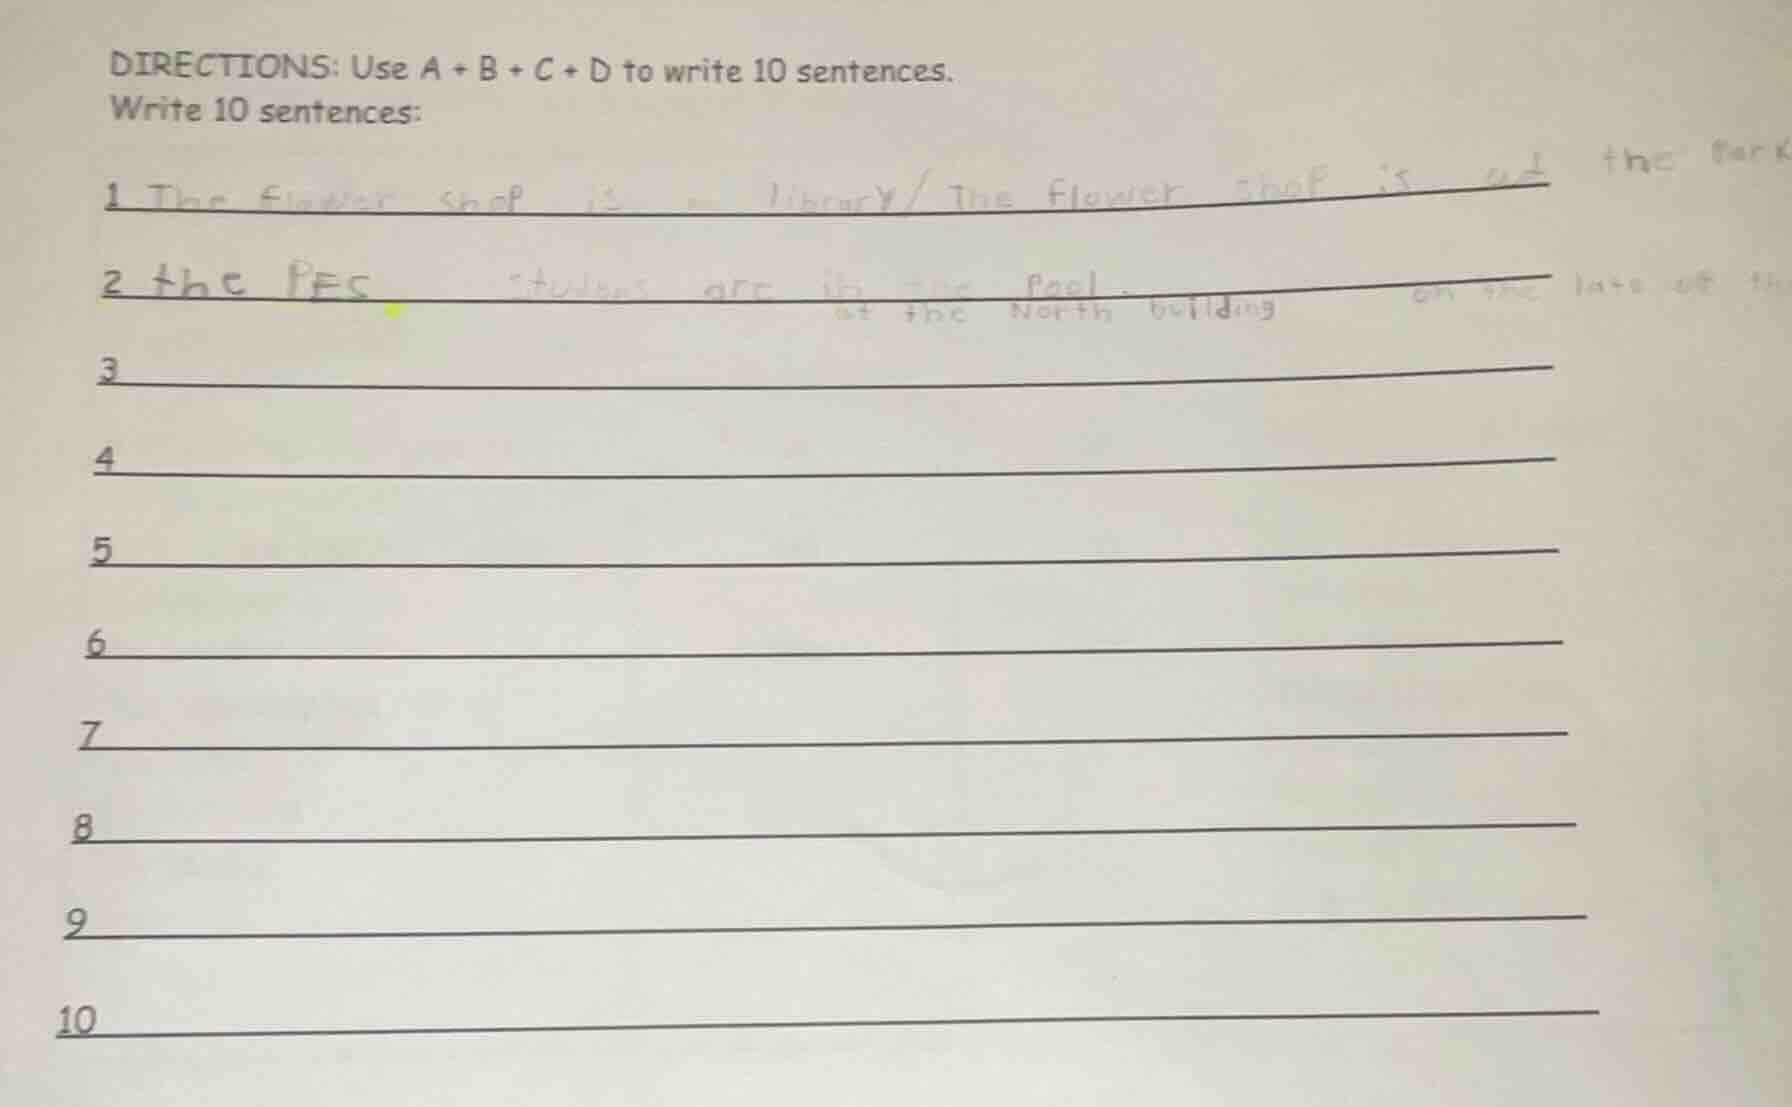 DIRECTIONS: Use A + B + C + D to write 10 sentences.
Write 10 sentences:
1 The flower shop is library/ The flower shop is the Park
2 the PES are in the Pool.
at the North building on the
3
4
5
6
7
8
9
10